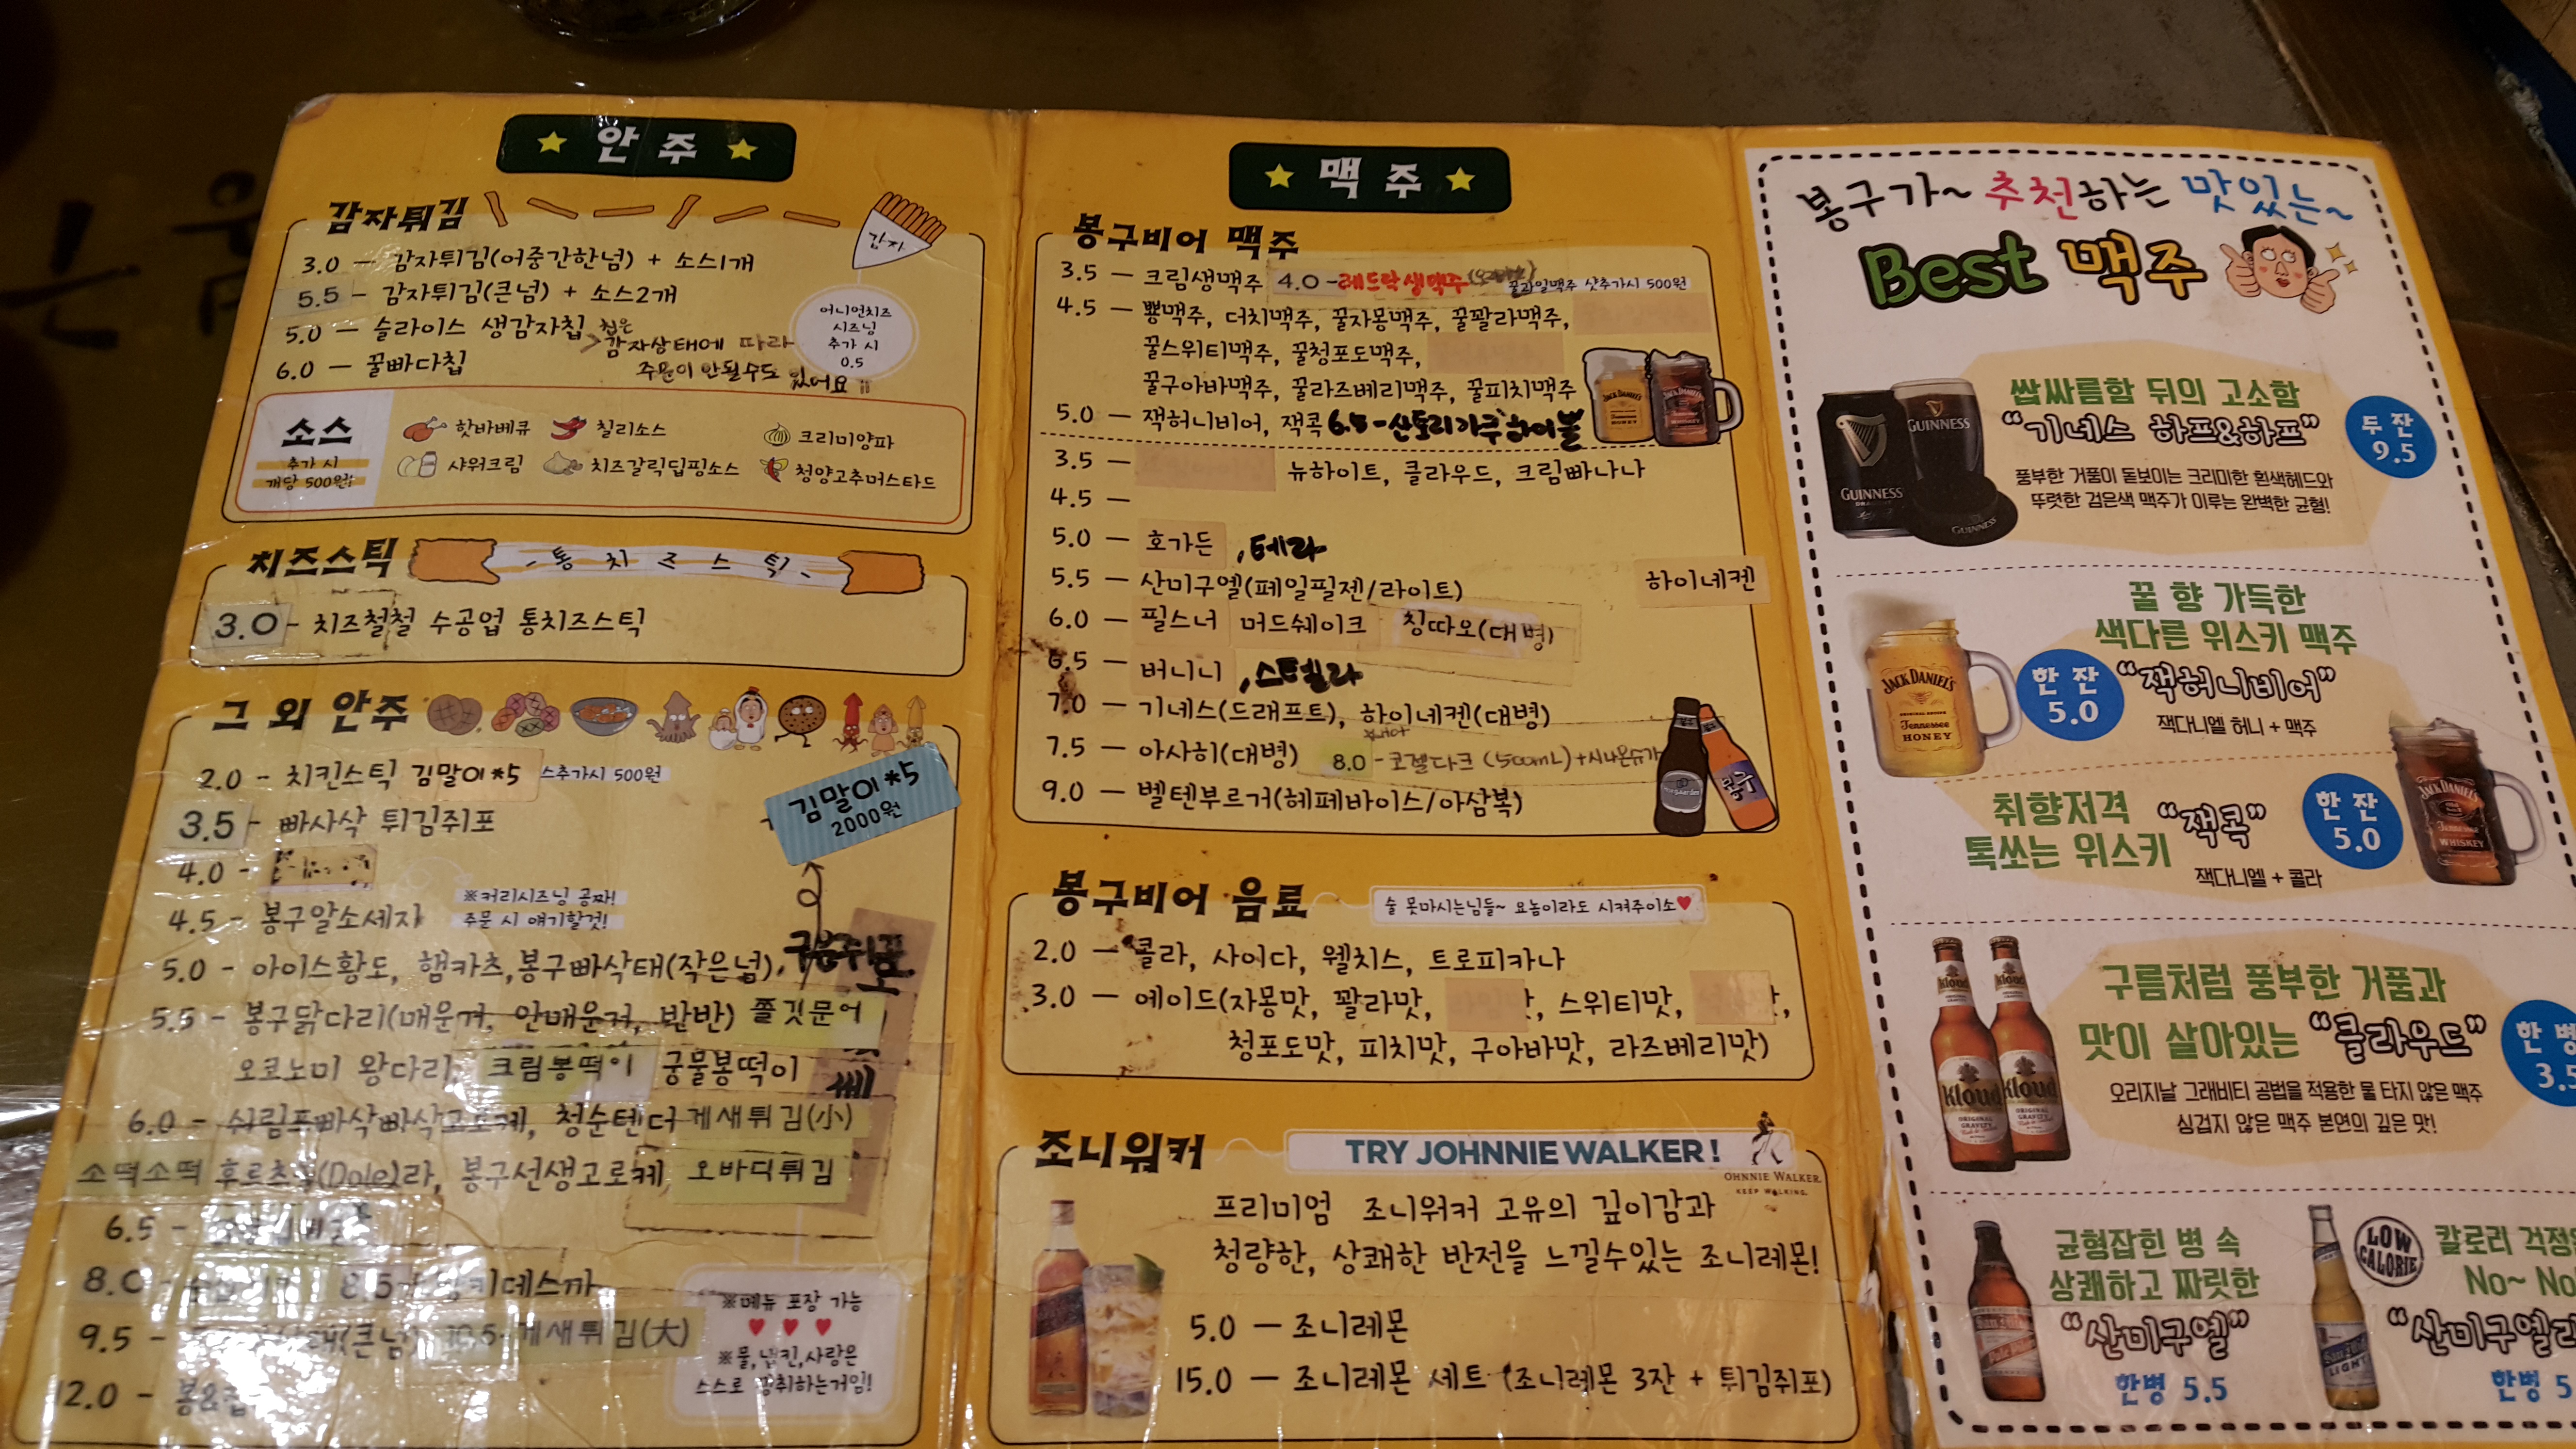 ★ 안주 ★
감자튀김
감자
3.0 — 감자튀김(어중간한넘) + 소스1개
5.5 - 감자튀김(큰넘) + 소스2개
5.0 — 슬라이스 생감자칩
6.0 — 꿀빠다칩
칩은
감자상태에 따라
주문이 안될수도 있어요
어니언치즈
시즈닝
추가 시
0.5
소스
추가 시
개당 500원
핫바베큐 칠리소스 크리미양파
샤워크림 치즈갈릭딥핑소스 청양고추머스타드
치즈스틱
- 통 치 즈 스 틱 -
3.0 - 치즈철철 수공업 통치즈스틱
그 외 안주
2.0 - 치킨스틱 김말이*5 스추가시 500원
김말이*5
2000원
3.5 - 빠사삭 튀김쥐포
4.0 -
4.5 - 봉구알소세지
※커리시즈닝 공짜!
주문 시 얘기할것!
5.0 - 아이스황도, 햄카츠, 봉구빠삭태(작은넘),
5.5 - 봉구닭다리(매운거, 안매운거, 반반) 쫄깃문어
오코노미 왕다리, 크림봉떡이 궁물봉떡이
6.0 - 쉬림프빠삭빠삭고로케, 청순텐더 게새튀김(小)
소떡소떡 후르츠 (Dole)라, 봉구선생고로케 오바디튀김
6.5 -
8.0 - 8.5 키데스까
9.5 - (큰넘) 10.5- 게새튀김(大)
12.0 - 봉&칩
※메뉴 포장 가능
♥ ♥ ♥
※물,냅킨,사랑은
스스로 쟁취하는거임!
★ 맥주 ★
봉구비어 맥주
3.5 — 크림생맥주 4.0 - 레드락생맥주 꿀과일맥주 샷추가시 500원
4.5 — 뽕맥주, 더치맥주, 꿀자몽맥주, 꿀꽐라맥주,
꿀스위티맥주, 꿀청포도맥주,
꿀구아바맥주, 꿀라즈베리맥주, 꿀피치맥주
5.0 — 잭허니비어, 잭콕 산토리가쿠하이볼
3.5 — 뉴하이트, 클라우드, 크림빠나나
4.5 —
5.0 — 호가든, 테라
5.5 — 산미구엘(페일필젠/라이트) 하이네켄
6.0 — 필스너 머드쉐이크 칭따오(대병)
6.5 — 버니니, 스텔라
7.0 — 기네스(드래프트), 하이네켄(대병)
7.5 — 아사히(대병) 8.0 - 코젤다크 (500mL)+시나몬슈가
9.0 — 벨텐부르거(헤페바이스/아삼복)
봉구비어 음료
술 못마시는님들~ 요놈이라도 시켜주이소♥
2.0 — 콜라, 사이다, 웰치스, 트로피카나
3.0 — 에이드(자몽맛, 꽐라맛, 스위티맛,
청포도맛, 피치맛, 구아바맛, 라즈베리맛)
조니워커
TRY JOHNNIE WALKER !
OHNNIE WALKER.
KEEP WALKING.
프리미엄 조니워커 고유의 깊이감과
청량한, 상쾌한 반전을 느낄수있는 조니레몬!
5.0 — 조니레몬
15.0 — 조니레몬 세트 (조니레몬 3잔 + 튀김쥐포)
봉구가~ 추천하는 맛있는~
Best 맥주
쌉싸름함 뒤의 고소함
“기네스 하프&하프”
두 잔
9.5
풍부한 거품이 돋보이는 크리미한 흰색헤드와
뚜렷한 검은색 맥주가 이루는 완벽한 균형!
GUINNESS
GUINNESS
GUINNESS
꿀 향 가득한
색다른 위스키 맥주
“잭허니비어”
한 잔
5.0
잭다니엘 허니 + 맥주
JACK DANIEL'S
Tennessee
HONEY
취향저격
톡쏘는 위스키
“잭콕”
한 잔
5.0
잭다니엘 + 콜라
JACK DANIEL'S
WHISKEY
구름처럼 풍부한 거품과
맛이 살아있는 “클라우드”
한 병
3.5
오리지날 그래비티 공법을 적용한 물 타지 않은 맥주
싱겁지 않은 맥주 본연의 깊은 맛!
Kloud
Kloud
균형잡힌 병 속
상쾌하고 짜릿한
“산미구엘”
한병 5.5
LOW
CALORIE
칼로리 걱정
No~ No
“산미구엘라
한병 5